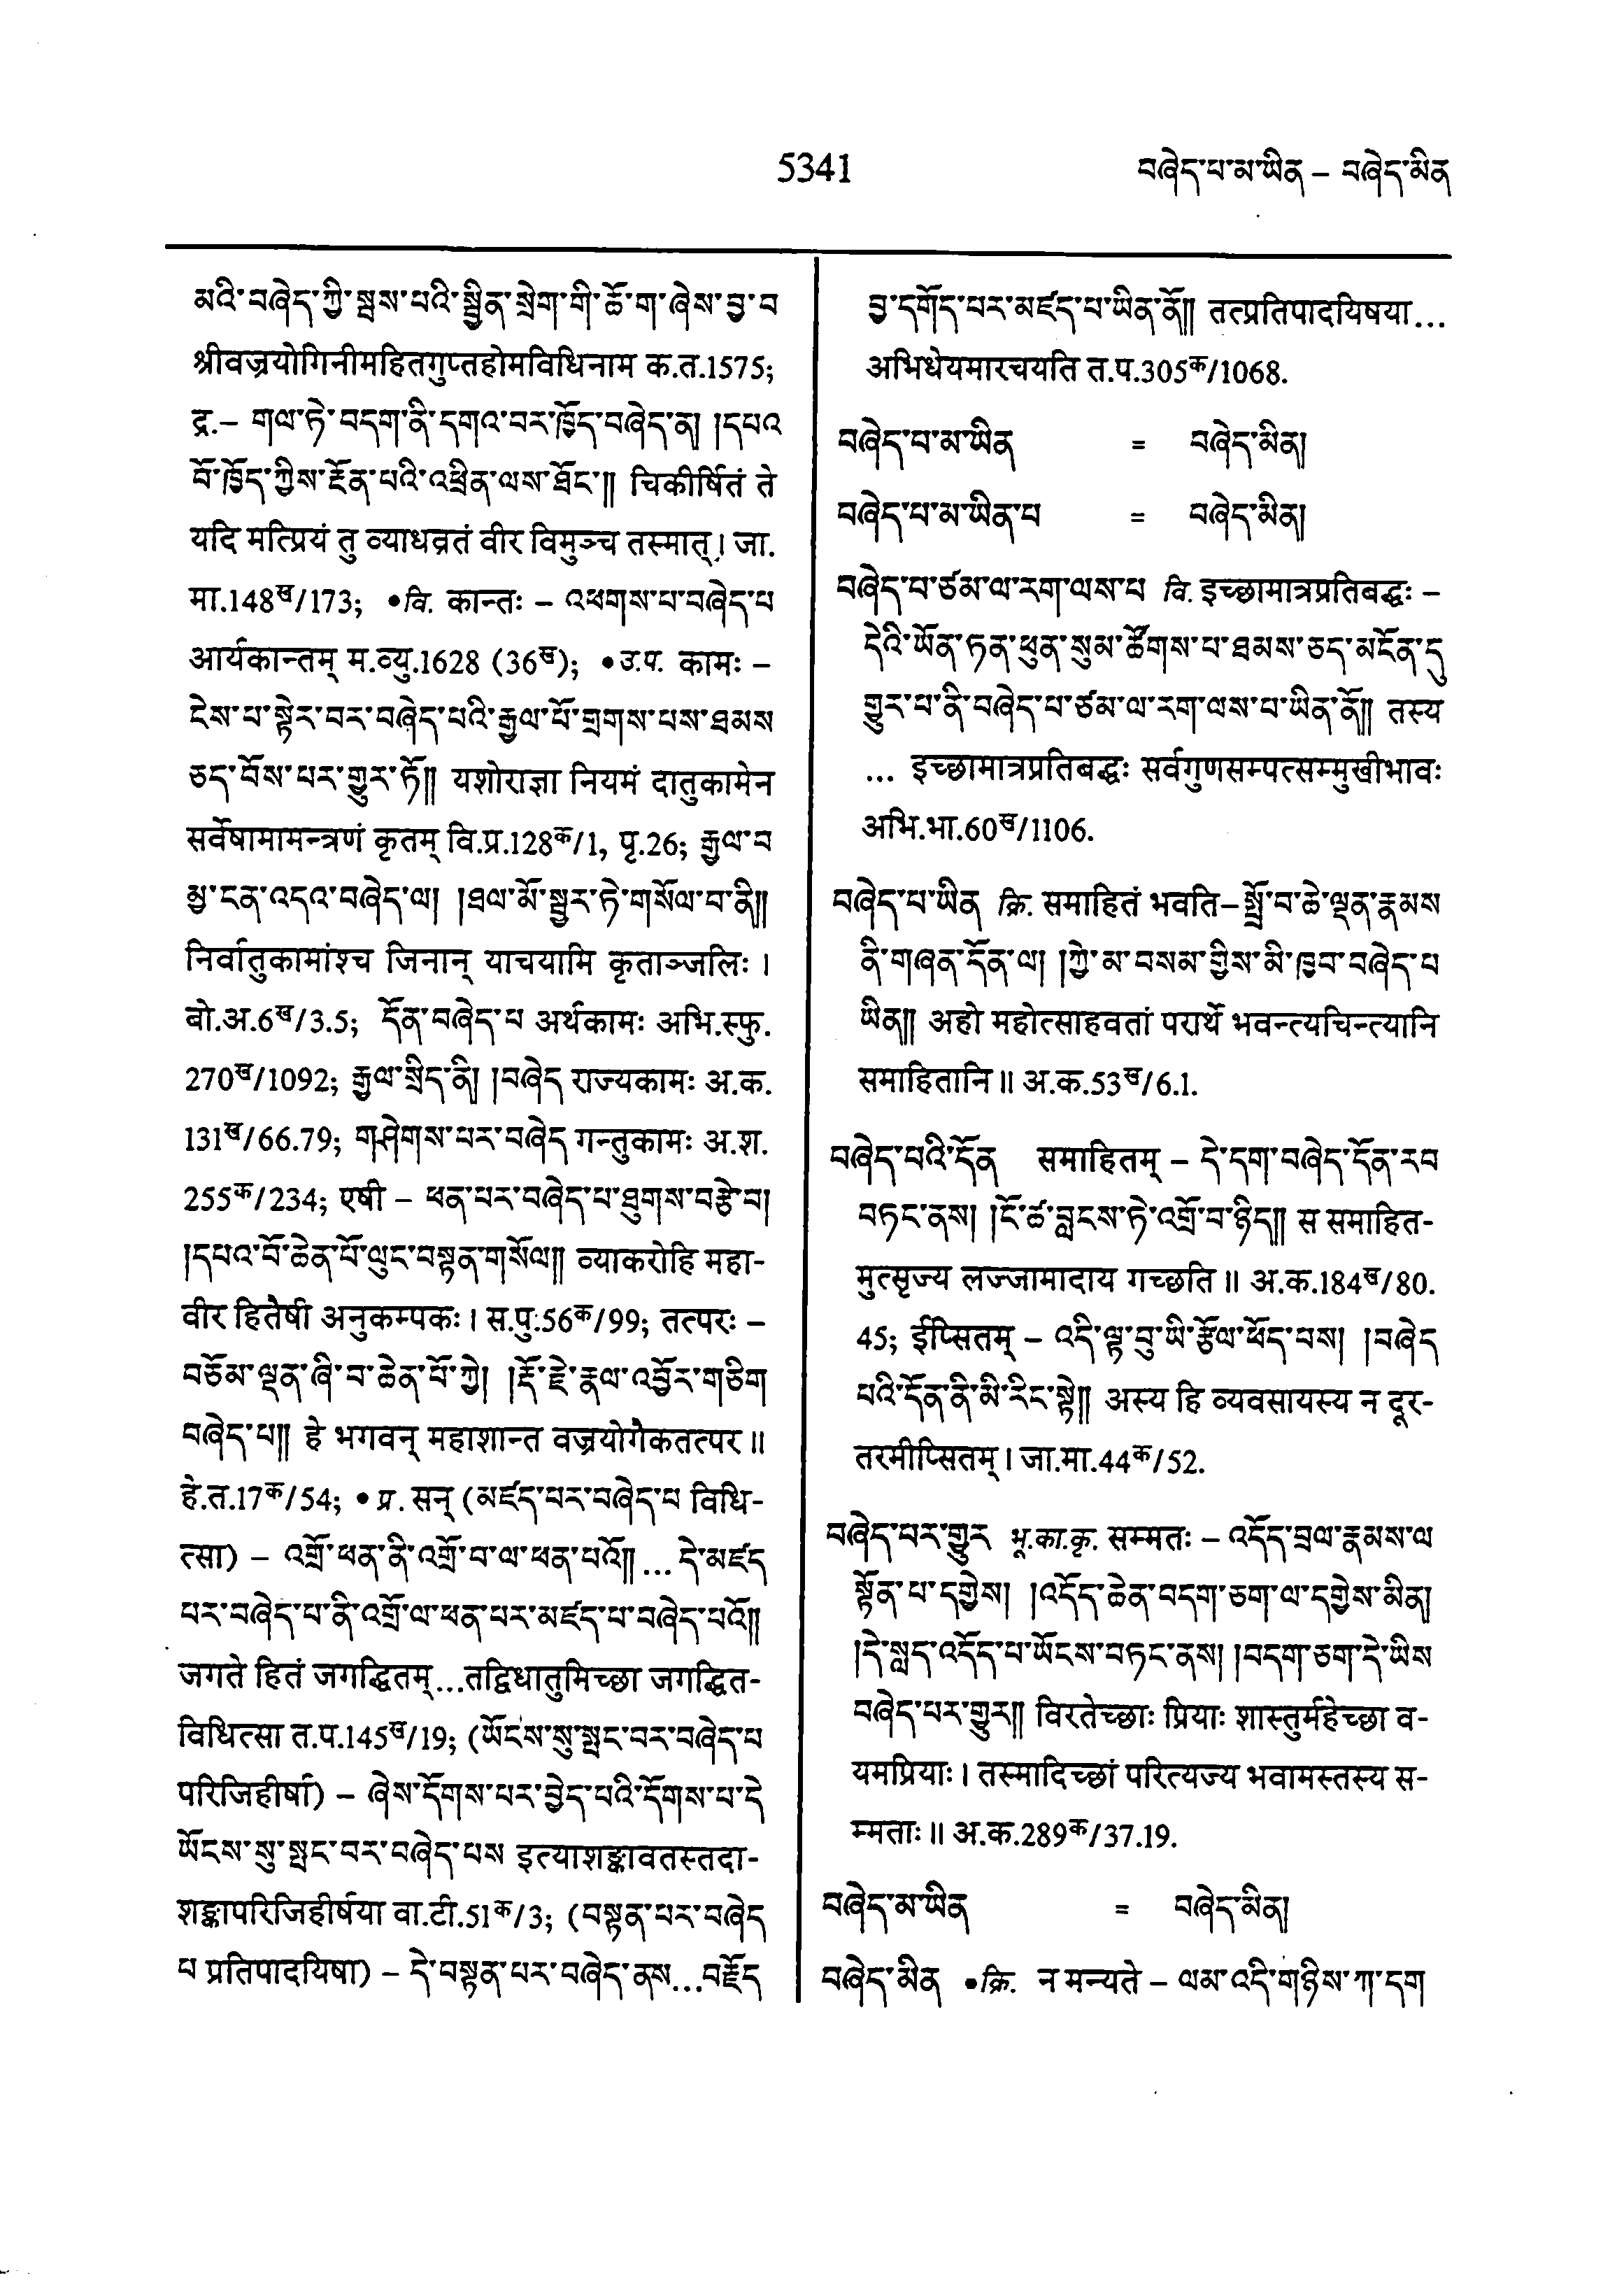 5341
བཞེད་པ་མ་ཡིན – བཞེད་མིན
མའི་བཞེད་ཀྱི་སྦས་པའི་སྦྱིན་སྲེག་གི་ཆོ་ག་ཞེས་བྱ་བ
श्रीवज्रयोगिनीमहितगुप्तहोमविधिनाम क.त.1575;
द्र.– གལ་ཏེ་བདག་ནི་དགའ་བར་ཁྱོད་བཞེད་ན། །དཔའ
བོ་ཁྱོད་ཀྱིས་རྔོན་པའི་འཕྲིན་ལས་ཐོང་༎ चिकीर्षितं ते
यदि मत्प्रियं तु व्याधव्रतं वीर विमुञ्च तस्मात्। जा.
मा.148ख/173; •वि. कान्तः – འཕགས་པ་བཞེད་པ
आर्यकान्तम् म.व्यु.1628 (36ख); •उ.प. कामः –
ངེས་པ་སྟེར་བར་བཞེད་པའི་རྒྱལ་པོ་གྲགས་པས་ཐམས
ཅད་བོས་པར་གྱུར་ཏོ༎ यशोराज्ञा नियमं दातुकामेन
सर्वेषामामन्त्रणं कृतम् वि.प्र.128क/1, पृ.26; རྒྱལ་བ
མྱ་ངན་འདའ་བཞེད་ལ། །ཐལ་མོ་སྦྱར་ཏེ་གསོལ་བ་ནི༎
निर्वातुकामांश्च जिनान् याचयामि कृताञ्जलिः ।
बो.अ.6ख/3.5; དོན་བཞེད་པ अर्थकामः अभि.स्फु.
270ख/1092; རྒྱལ་སྲིད་ནི། །བཞེད राज्यकामः अ.क.
131ख/66.79; གཤེགས་པར་བཞེད गन्तुकामः अ.श.
255क/234; एषी – ཕན་པར་བཞེད་པ་ཐུགས་བརྩེ་བ།
།དཔའ་བོ་ཆེན་པོ་ལུང་བསྟན་གསོལ༎ व्याकरोहि महा-
वीर हितैषी अनुकम्पकः । स.पु.56क/99; तत्परः –
བཅོམ་ལྡན་ཞི་བ་ཆེན་པོ་ཀྱེ། །རྡོ་རྗེ་རྣལ་འབྱོར་གཅིག
བཞེད་པ༎ हे भगवन् महाशान्त वज्रयोगैकतत्पर ॥
हे.त.17क/54; • प्र. सन् (མཛད་པར་བཞེད་པ विधि-
त्सा) – འགྲོ་ཕན་ནི་འགྲོ་བ་ལ་ཕན་པའོ༎ … དེ་མཛད
པར་བཞེད་པ་ནི་འགྲོ་ལ་ཕན་པར་མཛད་པ་བཞེད་པའོ༎
जगते हितं जगद्धितम्…तद्विधातुमिच्छा जगद्धित-
विधित्सा त.प.145ख/19; (ཡོངས་སུ་སྤང་བར་བཞེད་པ
परिजिहीर्षा) – ཞེས་དོགས་པར་བྱེད་པའི་དོགས་པ་དེ
ཡོངས་སུ་སྤང་བར་བཞེད་པས इत्याशङ्कावतस्तदा-
शङ्कापरिजिहीर्षया वा.टी.51क/3; (བསྟན་པར་བཞེད
པ प्रतिपादयिषा) – དེ་བསྟན་པར་བཞེད་ནས…བརྗོད
བྱ་དགོད་པར་མཛད་པ་ཡིན་ནོ༎ तत्प्रतिपादयिषया…
अभिधेयमारचयति त.प.305क/1068.
བཞེད་པ་མ་ཡིན = བཞེད་མིན།
བཞེད་པ་མ་ཡིན་པ = བཞེད་མིན།
བཞེད་པ་ཙམ་ལ་རག་ལས་པ वि. इच्छामात्रप्रतिबद्धः –
དེའི་ཡོན་ཏན་ཕུན་སུམ་ཚོགས་པ་ཐམས་ཅད་མངོན་དུ
གྱུར་པ་ནི་བཞེད་པ་ཙམ་ལ་རག་ལས་པ་ཡིན་ནོ༎ तस्य
… इच्छामात्रप्रतिबद्धः सर्वगुणसम्पत्सम्मुखीभावः
अभि.भा.60ख/1106.
བཞེད་པ་ཡིན क्रि. समाहितं भवति–སྤྲོ་བ་ཆེ་ལྡན་རྣམས
ནི་གཞན་དོན་ལ། །ཀྱེ་མ་བསམ་གྱིས་མི་ཁྱབ་བཞེད་པ
ཡིན༎ अहो महोत्साहवतां परार्थे भवन्त्यचिन्त्यानि
समाहितानि ॥ अ.क.53ख/6.1.
བཞེད་པའི་དོན समाहितम् – དེ་དག་བཞེད་དོན་རབ
བཏང་ནས། །ངོ་ཚ་བླངས་ཏེ་འགྲོ་བ་ཉིད༎ स समाहित-
मुत्सृज्य लज्जामादाय गच्छति ॥ अ.क.184ख/80.
45; ईप्सितम् – འདི་ལྟ་བུ་ཡི་རྩོལ་ཕོད་བས། །བཞེད
པའི་དོན་ནི་མི་རིང་སྟེ༎ अस्य हि व्यवसायस्य न दूर-
तरमीप्सितम् । जा.मा.44क/52.
བཞེད་པར་གྱུར भू.का.कृ. सम्मतः – འདོད་བྲལ་རྣམས་ལ
སྟོན་པ་དགྱེས། །འདོད་ཆེན་བདག་ཅག་ལ་དགྱེས་མིན།
།དེ་སླད་འདོད་པ་ཡོངས་བཏང་ནས། །བདག་ཅག་དེ་ཡིས
བཞེད་པར་གྱུར༎ विरतेच्छाः प्रियाः शास्तुर्महेच्छा व-
यमप्रियाः । तस्मादिच्छां परित्यज्य भवामस्तस्य स-
म्मताः ॥ अ.क.289क/37.19.
བཞེད་མ་ཡིན = བཞེད་མིན།
བཞེད་མིན •क्रि. न मन्यते – ལམ་འདི་གཉིས་ཀ་དག